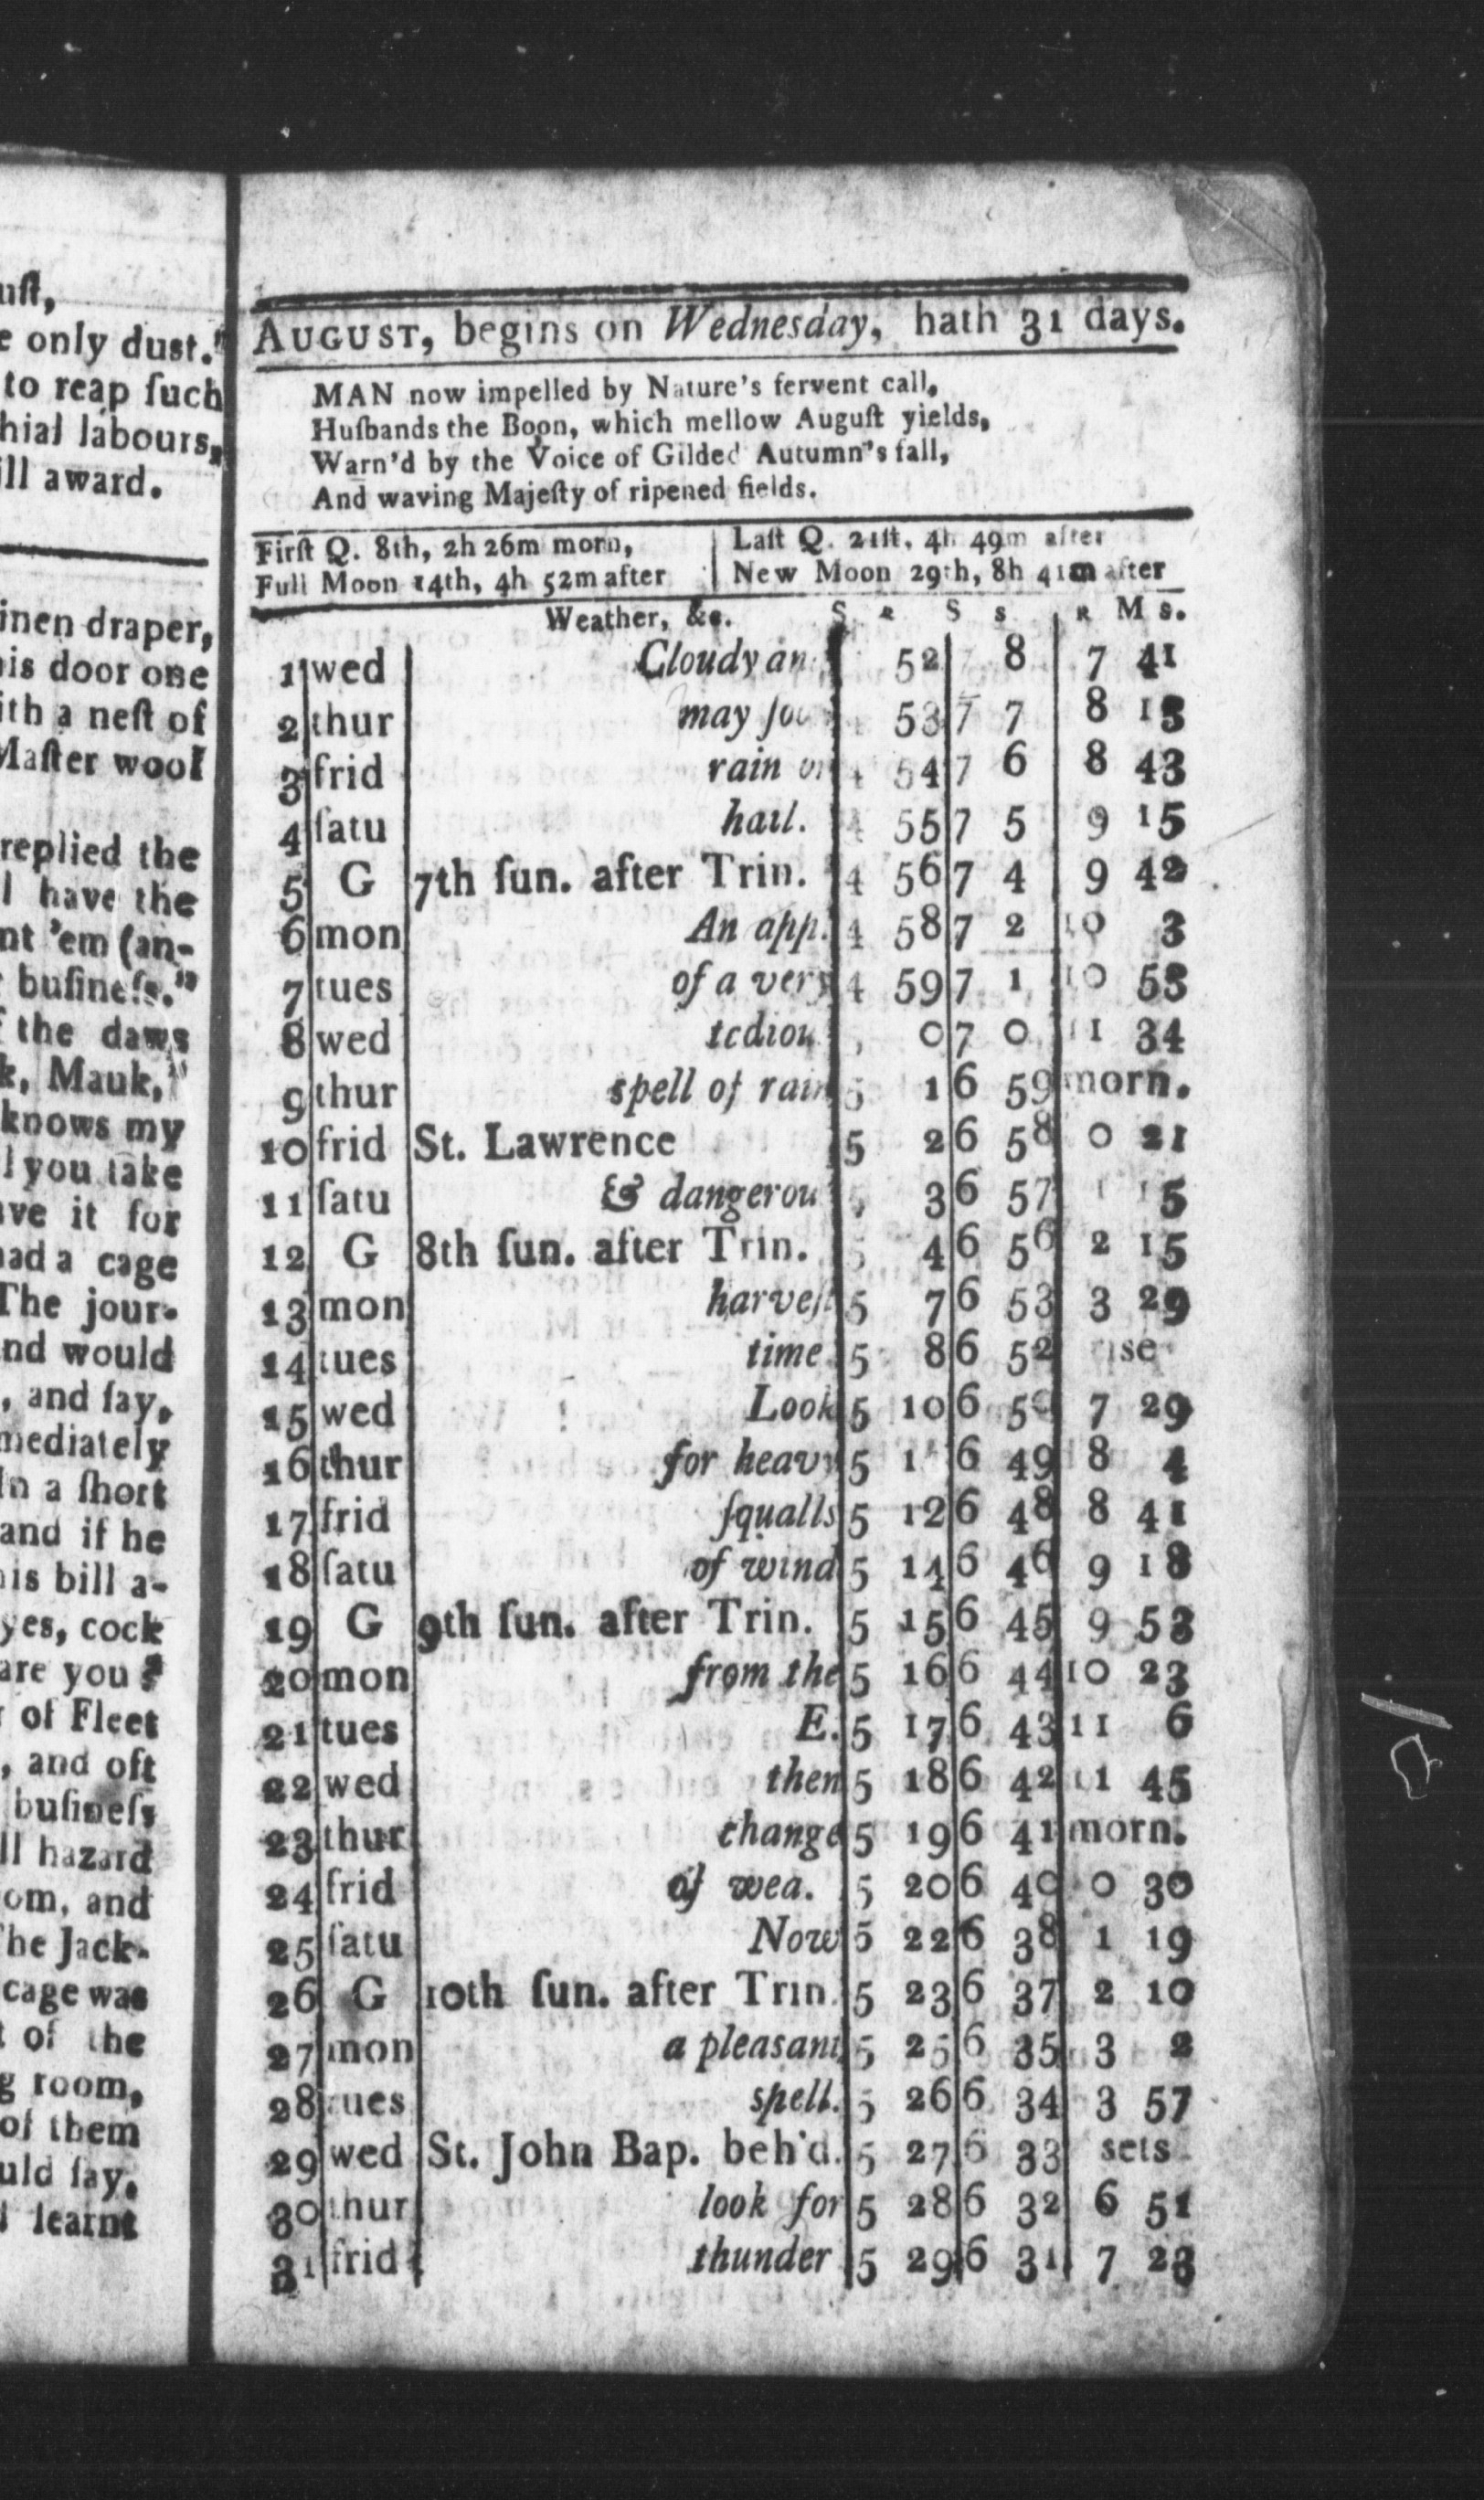 uſt,
e only dust."
to reap ſuch
hial labours,
ill award.
inen draper,
his door one
ith a neſt of
Maſter wool
replied the
I have the
nt 'em (an-
buſineſs."
f the daws
k, Mauk,"
knows my
l you take
ave it for
had a cage
The jour-
nd would
, and ſay,
mediately
In a ſhort
and if he
his bill a-
yes, cock
are you ?
of Fleet
, and oft
buſineſs
ll hazard
om, and
The Jack-
cage was
t of the
g room,
of them
uld ſay,
learnt
AUGUST, begins on Wednesday, hath 31 days.
MAN now impelled by Nature's fervent call,
Huſbands the Boon, which mellow Auguſt yields,
Warn'd by the Voice of Gilded Autumn"s fall,
And waving Majeſty of ripened fields.
Firſt Q. 8th, 2h 26m morn,
Full Moon 14th, 4h 52m after
Laſt Q. 21ſt, 4h 49m after
New Moon 29th, 8h 41m after
Weather, &c. S R S s R M s.
1 wed Cloudy an 52 8 7 41
2 thur may 53 7 7 8 13
3 frid rain 54 7 6 8 43
4 ſatu hail. 55 7 5 9 15
5 G 7th ſun. after Trin. 4 56 7 4 9 42
6 mon An app. 4 58 7 2 10 3
7 tues of a very 4 59 7 1 10 53
8 wed tediou 0 7 0 11 34
9 thur spell of rain 5 1 6 59 morn.
10 frid St. Lawrence 5 2 6 58 0 21
11 ſatu & dangerou 3 6 57 1 15
12 G 8th ſun. after Trin. 5 4 6 56 2 15
13 mon harveſt 5 7 6 53 3 29
14 tues time 5 8 6 52 rise
15 wed Look 5 10 6 50 7 29
16 thur for heavy 5 6 49 8 4
17 frid ſqualls 5 12 6 48 8 41
18 ſatu of wind 5 14 6 46 9 18
19 G 9th ſun. after Trin. 5 15 6 45 9 53
20 mon from the 5 16 6 44 10 23
21 tues E. 5 17 6 43 11 6
22 wed then 5 18 6 42 11 45
23 thur change 5 19 6 41 morn.
24 frid of wea. 5 20 6 40 0 30
25 ſatu Now 5 22 6 38 1 19
26 G 10th ſun. after Trin. 5 23 6 37 2 10
27 mon a pleasant 5 25 6 35 3 2
28 tues spell. 5 26 6 34 3 57
29 wed St. John Bap. beh'd. 5 27 6 33 sets
30 thur look for 5 28 6 32 6 51
31 frid thunder 5 29 6 31 7 23